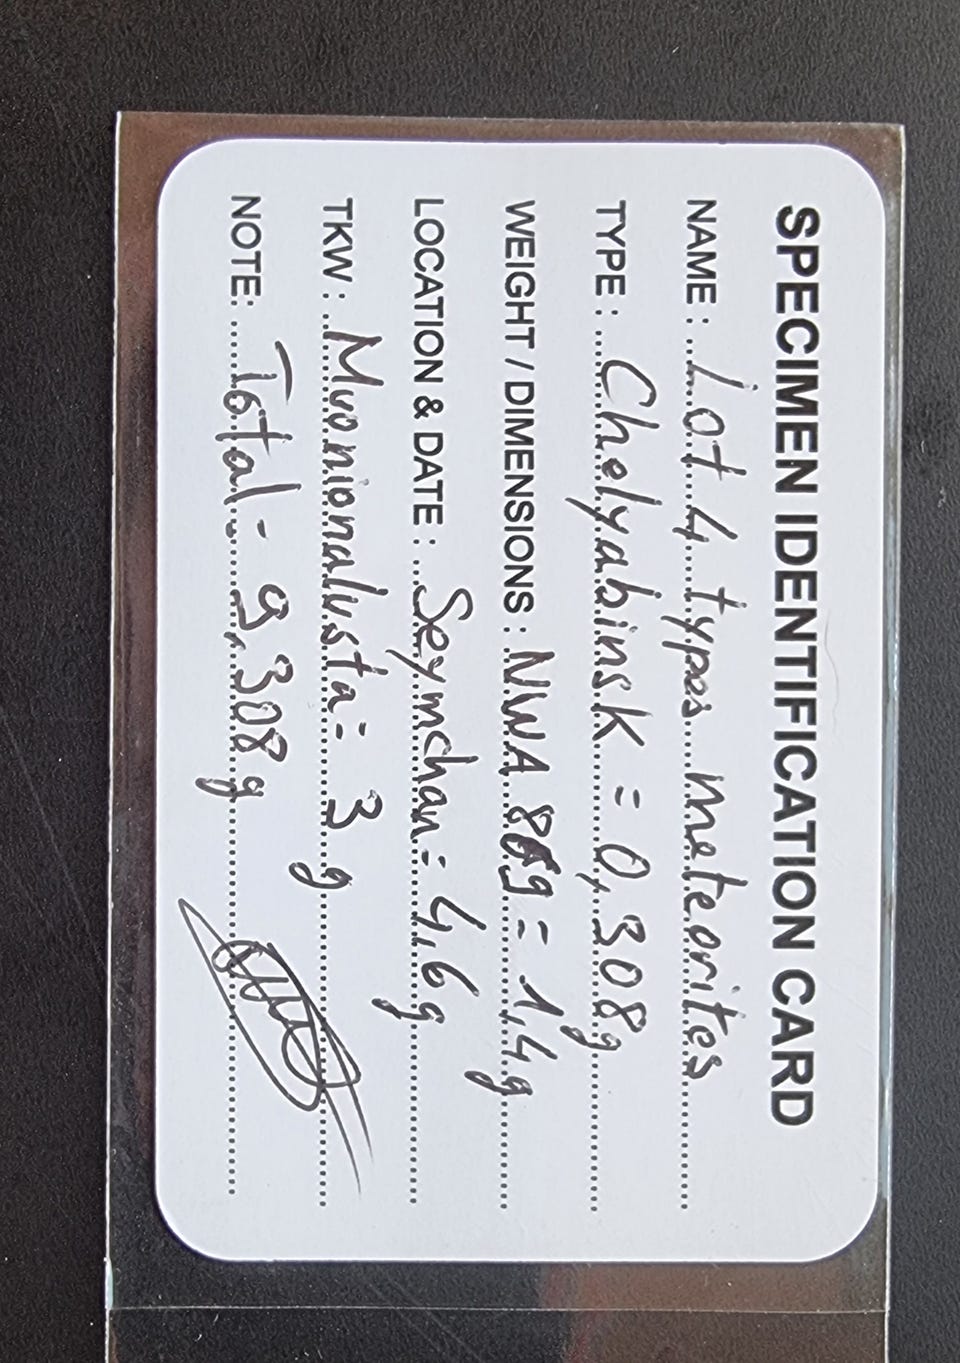 SPECIMEN IDENTIFICATION CARD
NAME : Lot 4 types meteorites
TYPE : Chelyabinsk = 0,308g
WEIGHT / DIMENSIONS : NWA 869 = 1,4 g
LOCATION & DATE : Seymchan = 4,6g
TKW : Muonionalusta = 3 g
NOTE: Total - 9,308g